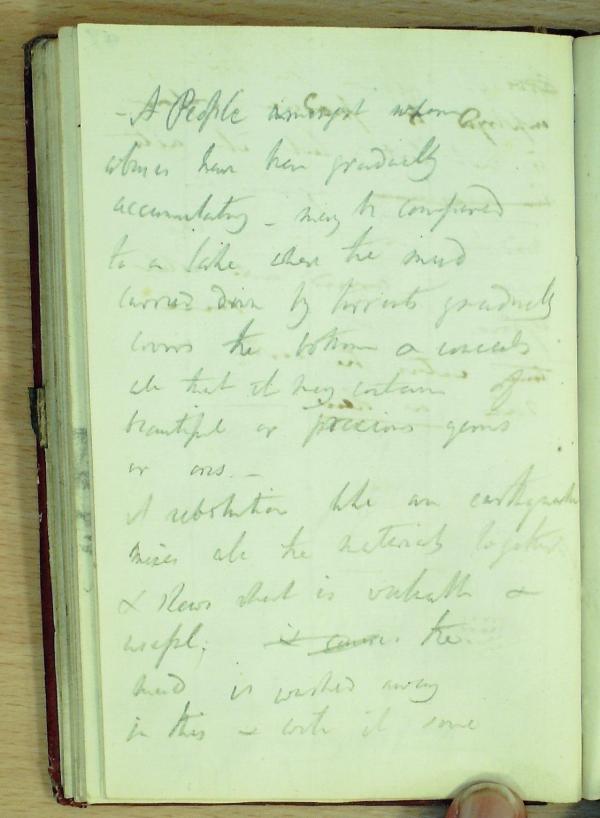 - A People amongst whom
abuses have been gradually
accumulating - may be compared
to a lake where the mud
carried down by torrents gradually
covers the bottom & conceals
all that it may contain of
beautiful or precious gems
or ores. -
A revolution like an earthquake
mixes all the materials together
& shews what is valuable &
useful; it causes the
mud is washed away
in this & with it some